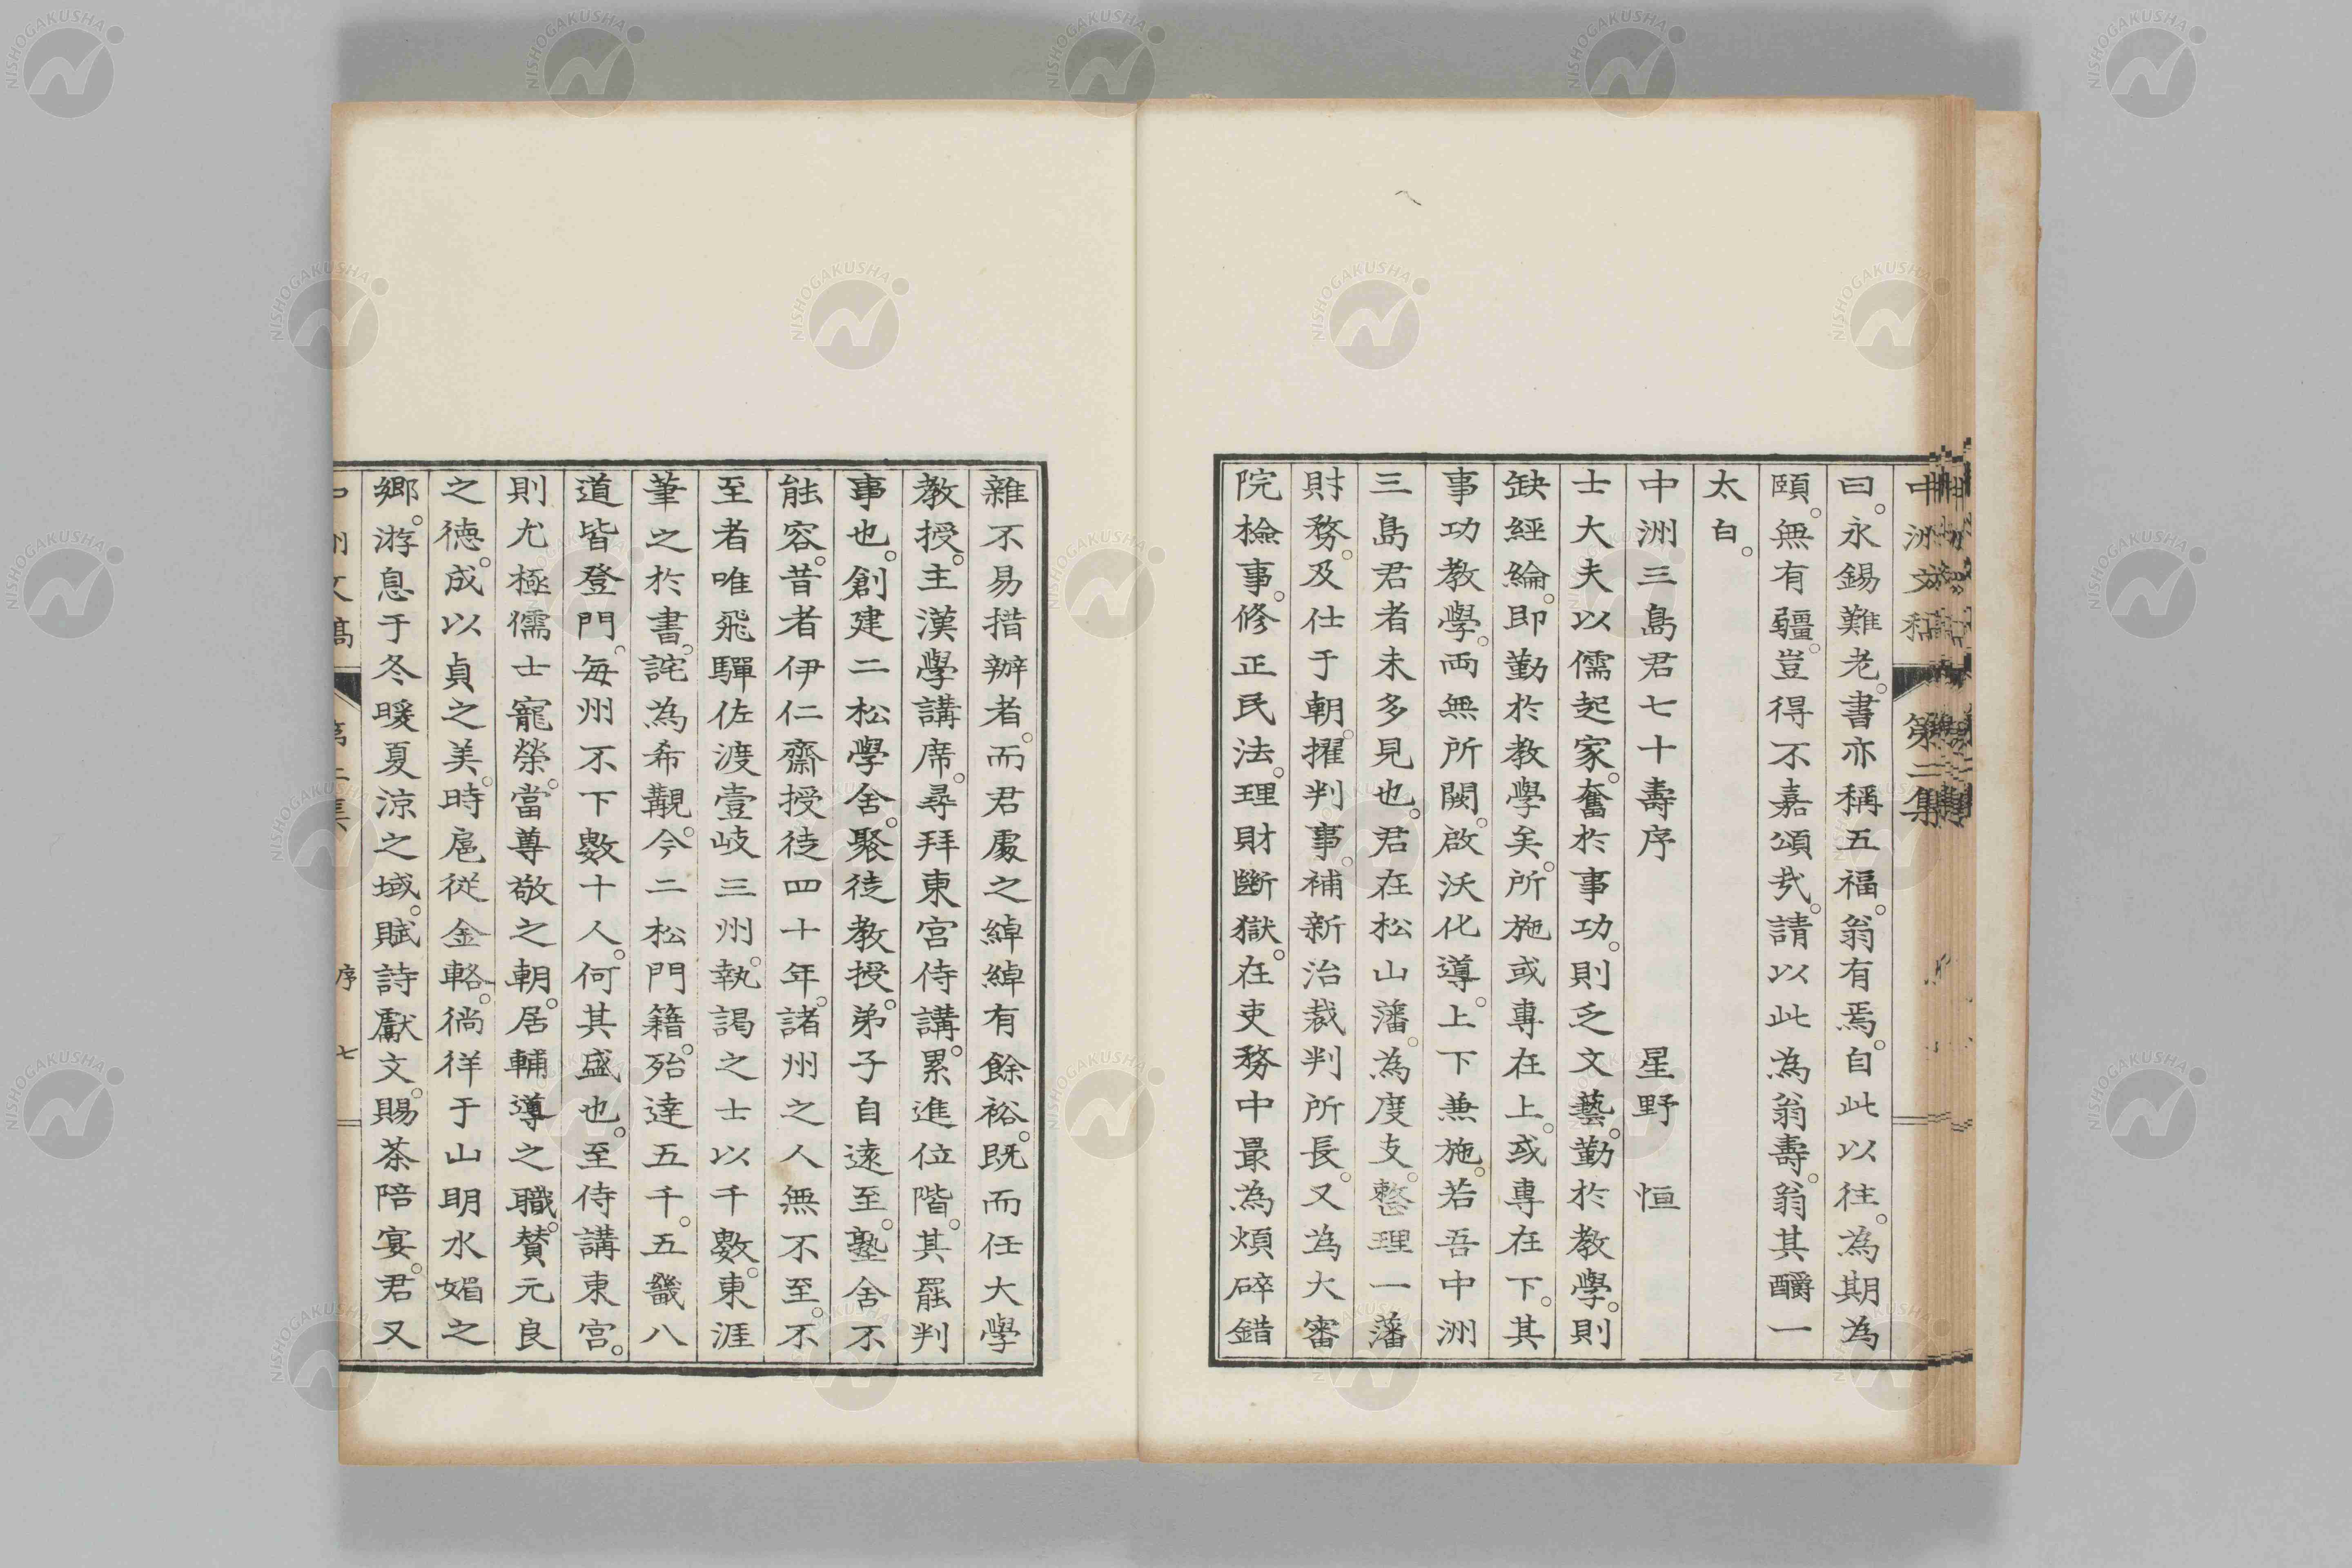 中洲文稿 第二集
曰。永錫難老。書亦稱五福。翁有焉。自此以往。為期為
頤。無有疆。豈得不嘉頌哉。請以此為翁壽。翁其釂一
太白。
中洲三島君七十壽序 星野 恒
士大夫以儒起家。奮於事功。則乏文藝。勤於教學。則
缺經綸。即勤於教學矣。所施或專在上。或專在下。其
事功教學。両無所闕。啟沃化導。上下兼施。若吾中洲
三島君者未多見也。君在松山藩。為度支。整理一藩
財務。及仕于朝。擢判事。補新治裁判所長。又為大審
院檢事。修正民法。理財斷獄。在吏務中最為煩碎錯
雜不易措辦者。而君處之綽綽有餘裕。既而任大學
教授。主漢學講席。尋拜東宮侍講。累進位階。其罷判
事也。創建二松學舍。聚徒教授。弟子自遠至。塾舍不
能容。昔者伊仁齋授徒四十年。諸州之人無不至。不
至者唯飛驒佐渡壹岐三州。執謁之士以千數。東涯
筆之於書。詫為希覯。今二松門籍。殆達五千。五畿八
道皆登門。每州不下數十人。何其盛也。至侍講東宮。
則尤極儒士寵榮。當尊敬之朝。居輔導之職。賛元良
之德。成以貞之美。時扈從金輅。徜徉于山明水媚之
鄉。游息于冬暖夏涼之域。賦詩獻文。賜茶陪宴。君又
中洲文稿 第二集 序 七
NISHOGAKUSHA